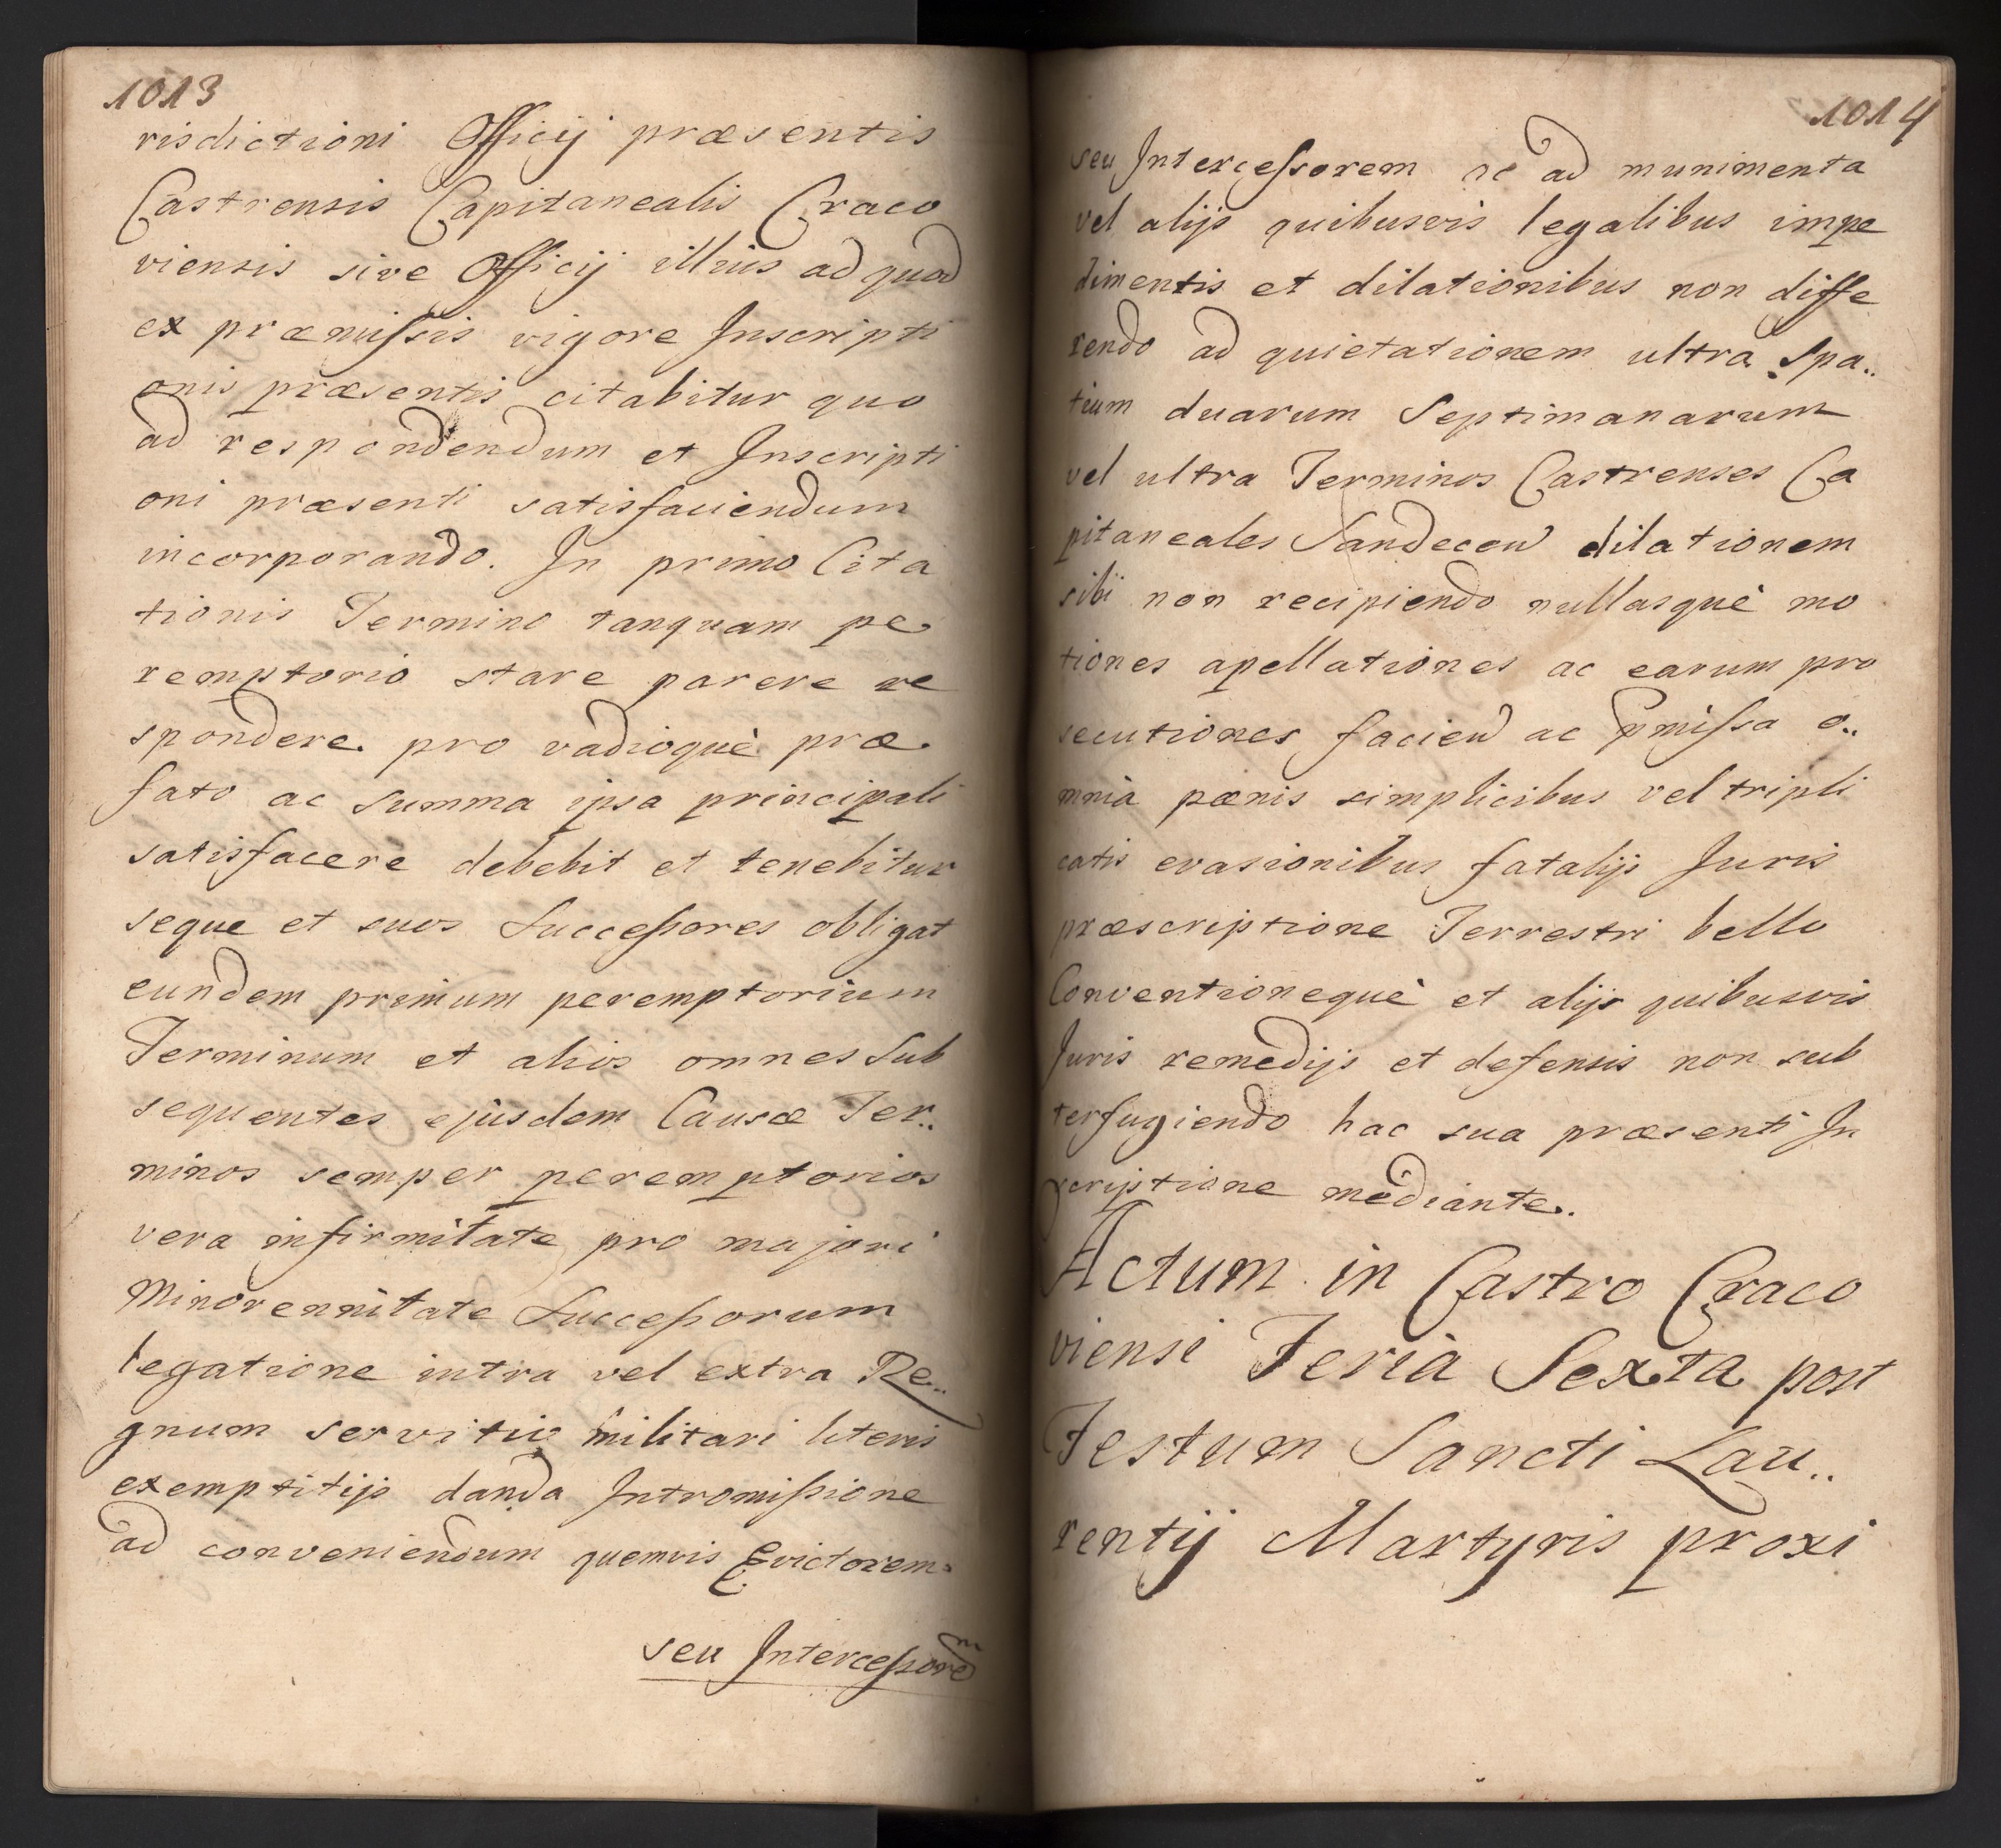 1013
risdictioni Officij præsentis
Castrensis Capitanealis Craco
viensis sive Officij illius ad quod
ex præmissis vigore Inscripti
onis præsentis citabitur quo
ad respondendum et Inscripti
oni præsenti satisfaciendum
incorporando. In primo Cita
tionis Termino tanquam pe
remptorio stare parere re
spondere pro vadioquè præ
fato ac summa ipsa principali
satisfacere debebit et tenebitur
seque et suos Successores obligat
eundem primum peremptorium
Terminum et alios omnes sub
sequentes ejusdem Causæ Ter..
minos semper peremptorios
vera infirmitate pro majori
Minorennitate Successorum
legatione intra vel extra Re..
gnum servitio militari literis
exemptitijs danda Intromissione
ad conveniendum quemvis Evictorem
seu Intercessorem
1014
seu Intercessorem ac ad munimenta
vel alijs quibusvis legalibus impe
dimentis et dilationibus non diffe
rendo ad quietationem ultra spa..
tium duarum Septimanarum
vel ultra Terminos Castrenses Ca
pitaneales Sandecen dilationem
sibi non recipiendo nullasquè mo
tiones apellationes ac earum pro
secutiones faciend ac pmissa o..
mnia pænis simplicibus vel tripli
catis evasionibus fatalijs Juris
præscriptione Terrestri bello
Conventionequè et alijs quibusvis
Juris remedijs et defensis non sub
terfugiendo hac sua præsenti In
scriptione mediante.
Actum in Castro Craco
viensi Feria Sexta post
Festum Sancti Lau..
rentij Martyris proxi